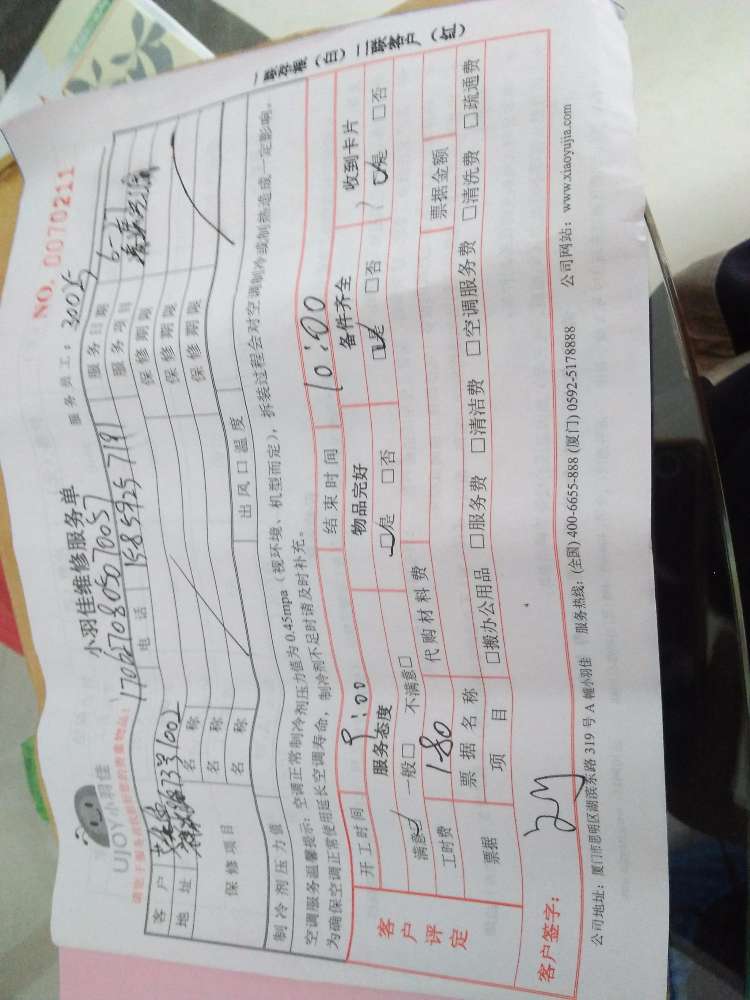 UJOY小羽佳
小羽佳维修服务单
NO. 0070211
服务员工：30025
客户
电话 15859257191
服务日期
地址
服务项目
保修项目
名称
保修期限
名称
保修期限
名称
保修期限
制冷剂压力值
出风口温度
空调服务温馨提示：空调正常制冷剂压力值为0.45mpa（视环境、机型而定），拆装过程会对空调制冷或制热造成一定影响。
为确保空调正常使用延长空调寿命，制冷剂不足时请及时补充。
客户评定
开工时间 9:00
结束时间 10:00
服务态度
物品完好
备件齐全
收到卡片
满意 一般□ 不满意□
□是 □否
□是 □否
□是 □否
工时费 180
代购材料费
票据金额
票据
票据名称
项目
□搬办公用品 □服务费 □清洁费 □空调服务费 □清洗费 □疏通费
客户签字：
公司地址：厦门市思明区湖滨东路319号A幢小羽佳 服务热线：(全国) 400-6655-888 (厦门) 0592-5178888 公司网站：www.xiaoyujia.com
一联存根（白）二联客户（红）